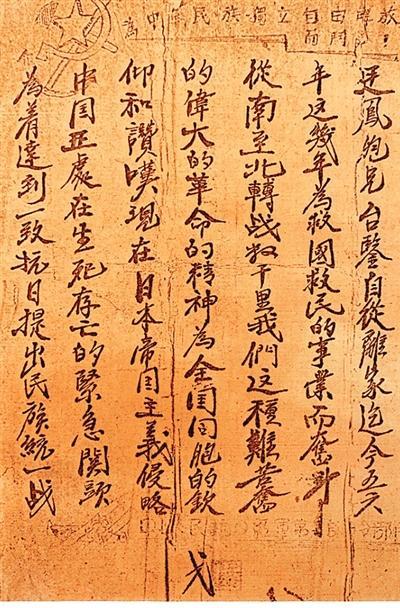 民族獨立自由
鳳胞兄台鑒自從離家迄今五六
年这幾年為救國救民的事業而奮鬥
從南至北轉战数千里我們这種艱苦奮
的偉大的革命的精神為全国同胞的欽
仰和讚嘆現在日本帝国主義侵略
中国正處在生死存亡的緊急関頭
為着達到一致抗日提出民族統一战